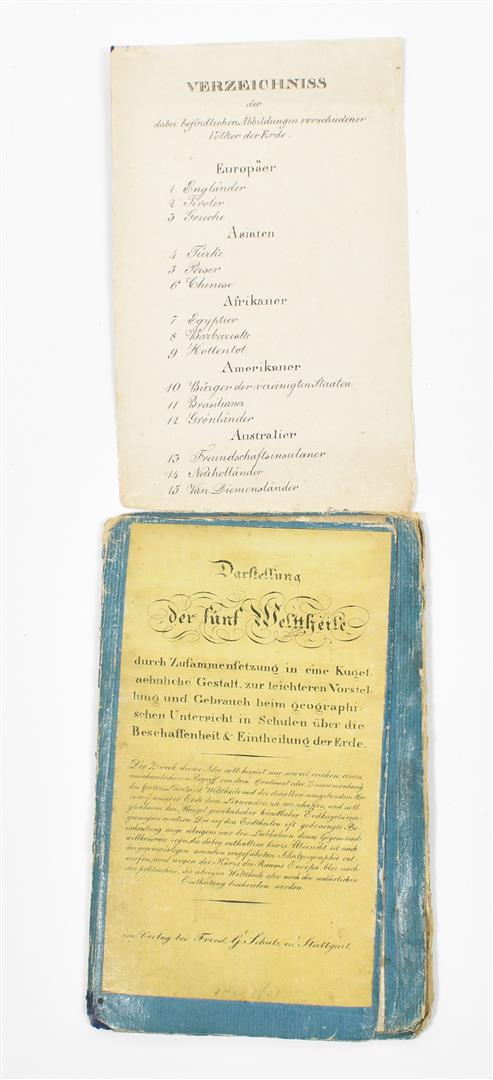 VERZEICHNISS
der
dabei befindlichen Abbildungen verschiedener
Völker der Erde.
Europäer
1 Engländer
2 Tiroler
3 Grieche
Asiaten
4 Türke
5 Perser
6 Chinese
Afrikaner
7 Egyptier
8 Barbareske
9 Hottentot
Amerikaner
10 Bürger der vereinigten Staaten
11 Brasilianer
12 Grönländer
Australier
13 Freundschaftsinsulaner
14 Neuholländer
15 Van Diemensländer
Darstellung
der fünf Welttheile
durch Zusammensetzung in eine Kugel-
aehnliche Gestalt, zur leichteren Vorstel-
lung und Gebrauch beim geographi-
schen Unterricht in Schulen über die
Beschaffenheit & Eintheilung der Erde.
Der Zweck dieser Idee soll hiemit nur so weit reichen einen
anschaulicheren Begriff von dem Continent oder Zusammenhang
des festen Landes der Welttheile und der dieselben umgebenden Mee-
re auf unserer Erde dem Lernenden zu verschaffen, und soll
gleichsam den Mangel gewöhnlicher künstlicher Erdkugeln
ersetzen. Die auf den Erdtheilen oft gedrängte Be-
schreibung möge übrigens auch den Liebhabern dieses Gegenstands
willkommen seyn, die dabey enthaltene kurze Übersicht ist nach
den gegenwärtigen neuesten eingeführten Schulgeographie ent-
worfen, und wegen der Kürze des Raums Europa blos nach
der politischen, die übrigen Welttheile aber nach der natürlichen
Eintheilung beschrieben worden.
im Verlag bei Fried. G. Schulz in Stuttgart.